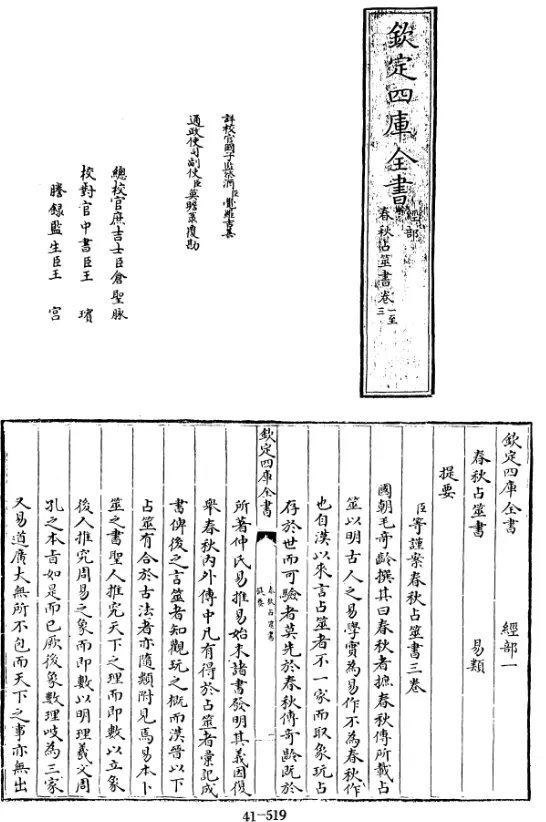 欽定四庫全書
經部
春秋占筮書卷一至三
詳校官國子監祭酒臣覺羅吉善
通政使司副使臣莫瞻菉覆勘
總校官庶吉士臣倉聖脉
校對官中書臣王瓚
謄錄監生臣王宮
欽定四庫全書 經部一
春秋占筮書 易類
提要
臣等謹案春秋占筮書三卷
國朝毛奇齡撰其曰春秋者摭春秋傳所載占
筮以明古人之易學實為易作不為春秋作
也自漢以來言占筮者不一家而取象玩占
存於世而可驗者莫先於春秋傳奇齡既於
欽定四庫全書
春秋占筮書
提要
所著仲氏易推易始末諸書發明其義因復
舉春秋內外傳中凡有得於占筮者彙記成
書俾後之言筮者知觀玩之概而漢晉以下
占筮有合於古法者亦隨類附見焉易本卜
筮之書聖人推究天下之理而即數以立象
後人推究周易之象而即數以明理羲文周
孔之本旨如是而已厥後象數理歧為三家
又易道廣大無所不包而天下之事亦無出
41-519